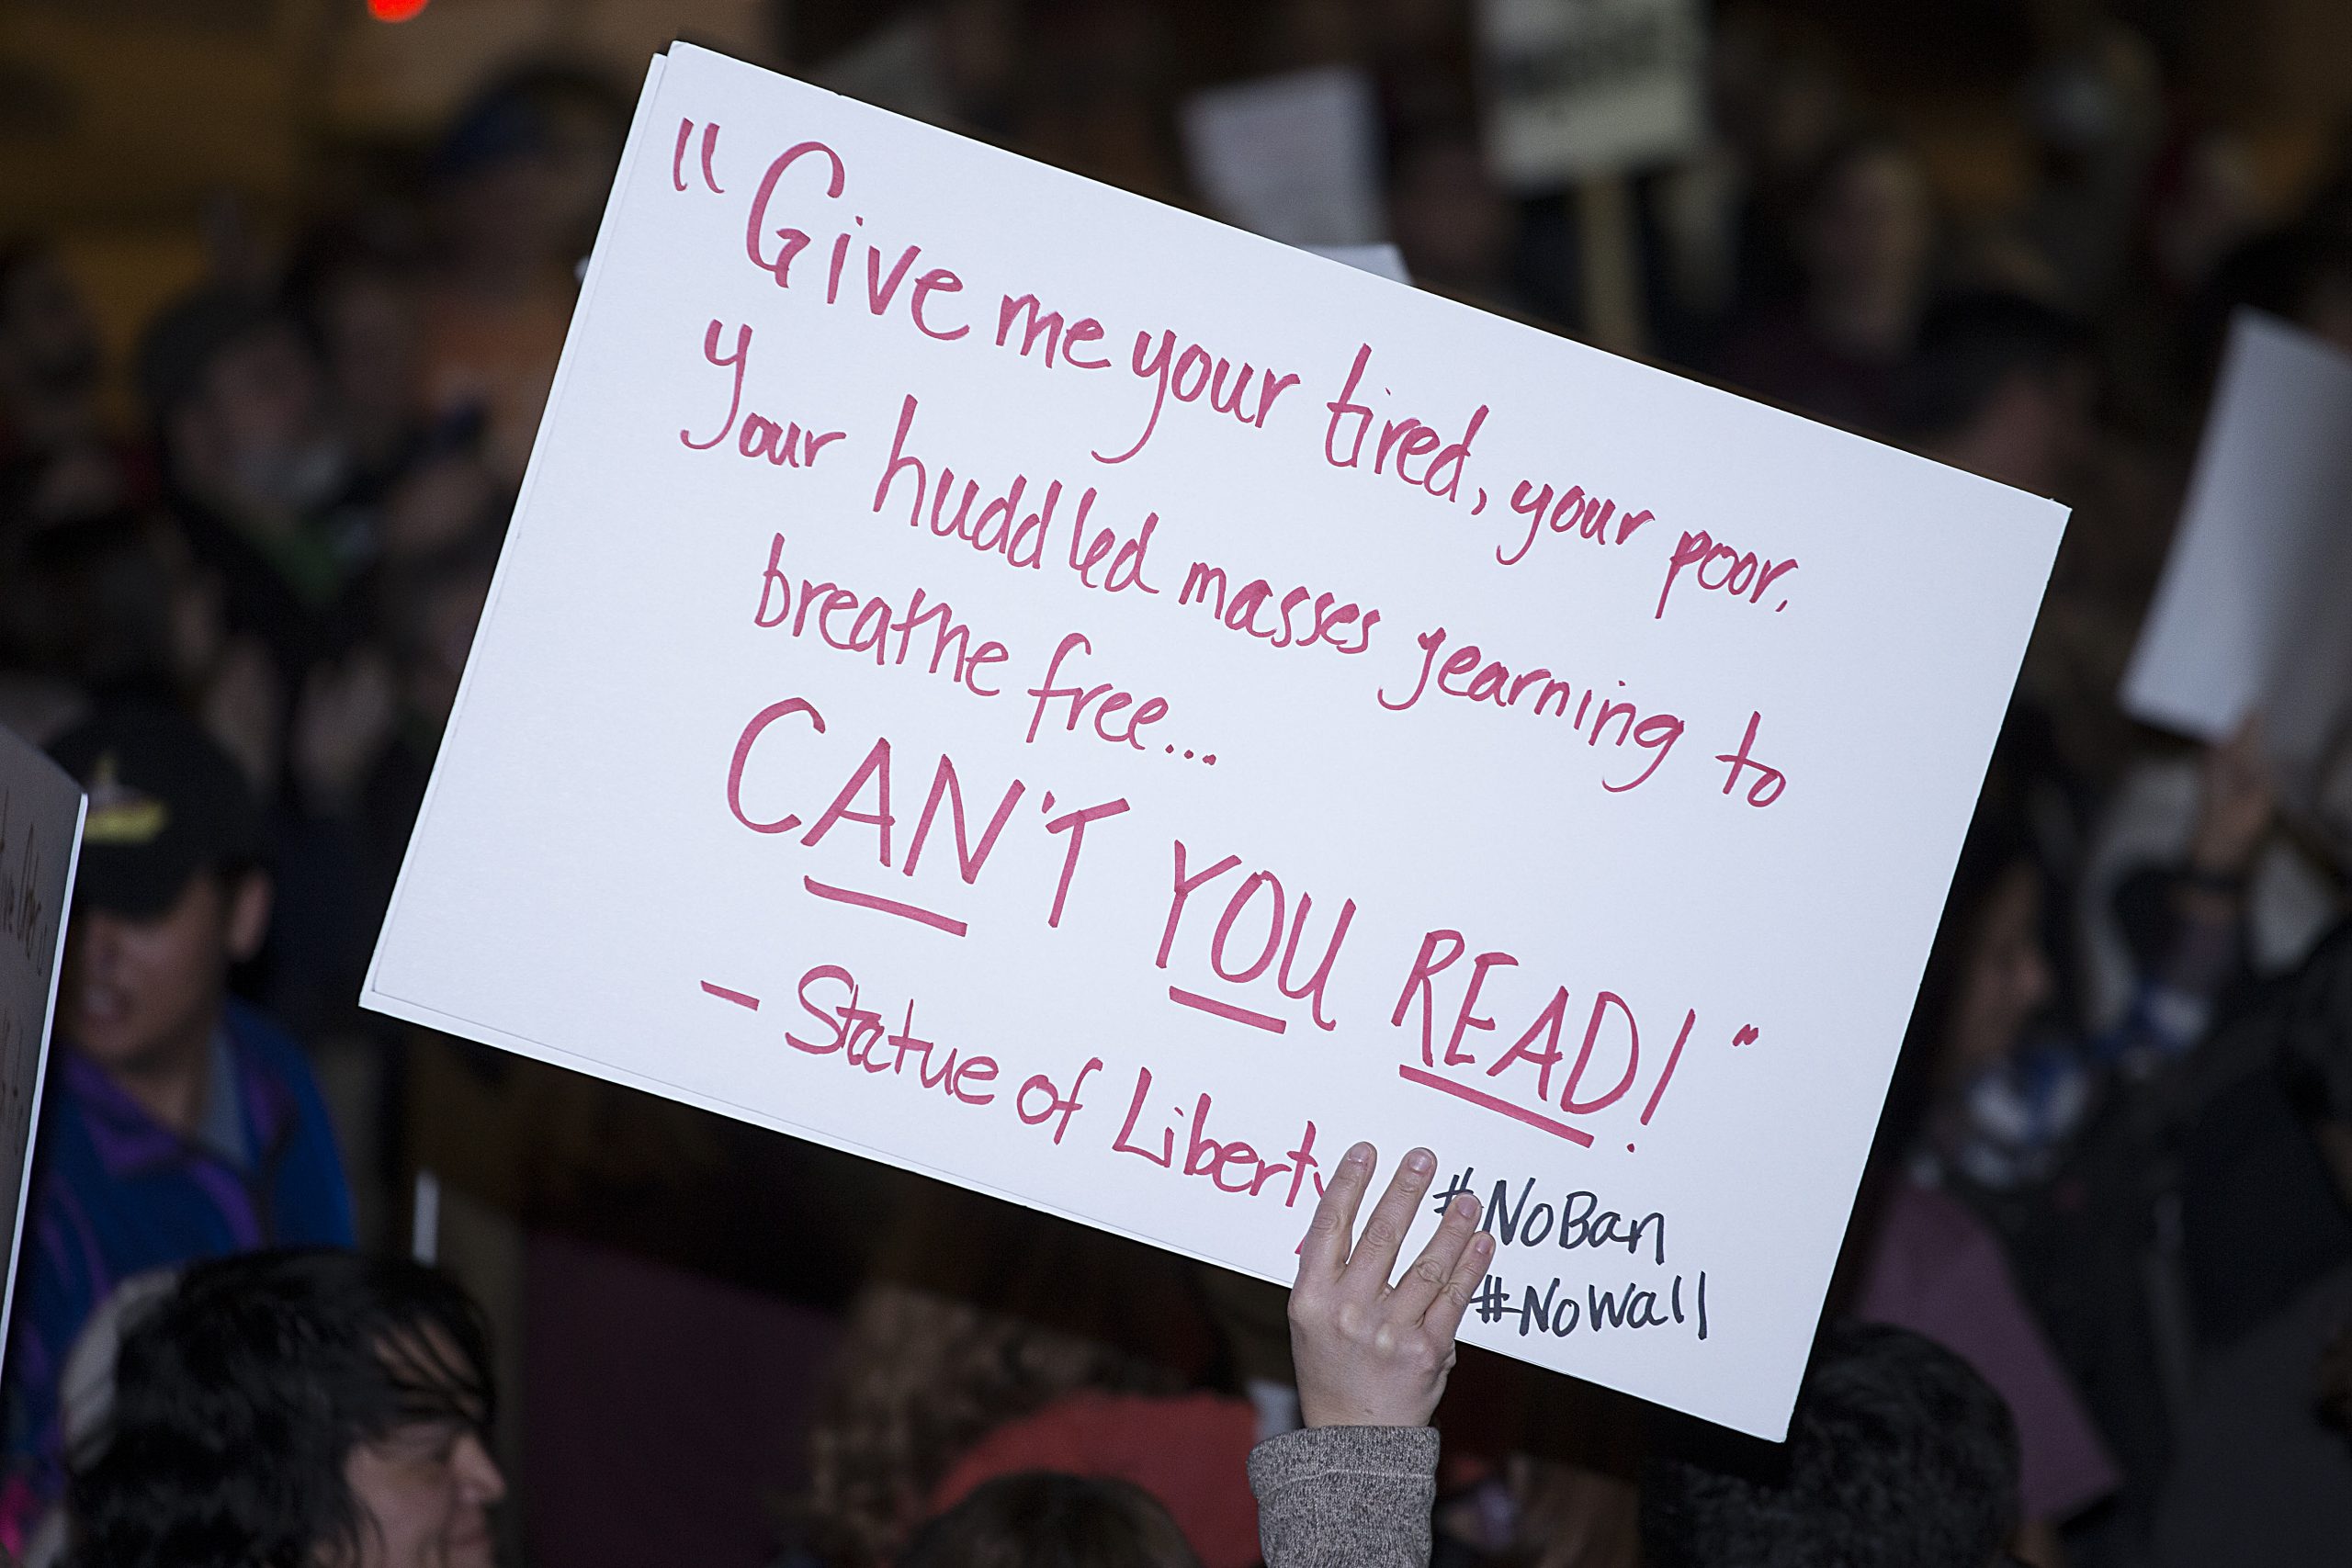 "Give me your tired, your poor,
Your huddled masses yearning to
breathe free...
CAN'T YOU READ!"
- Statue of Liberty
#NoBan
#NoWall